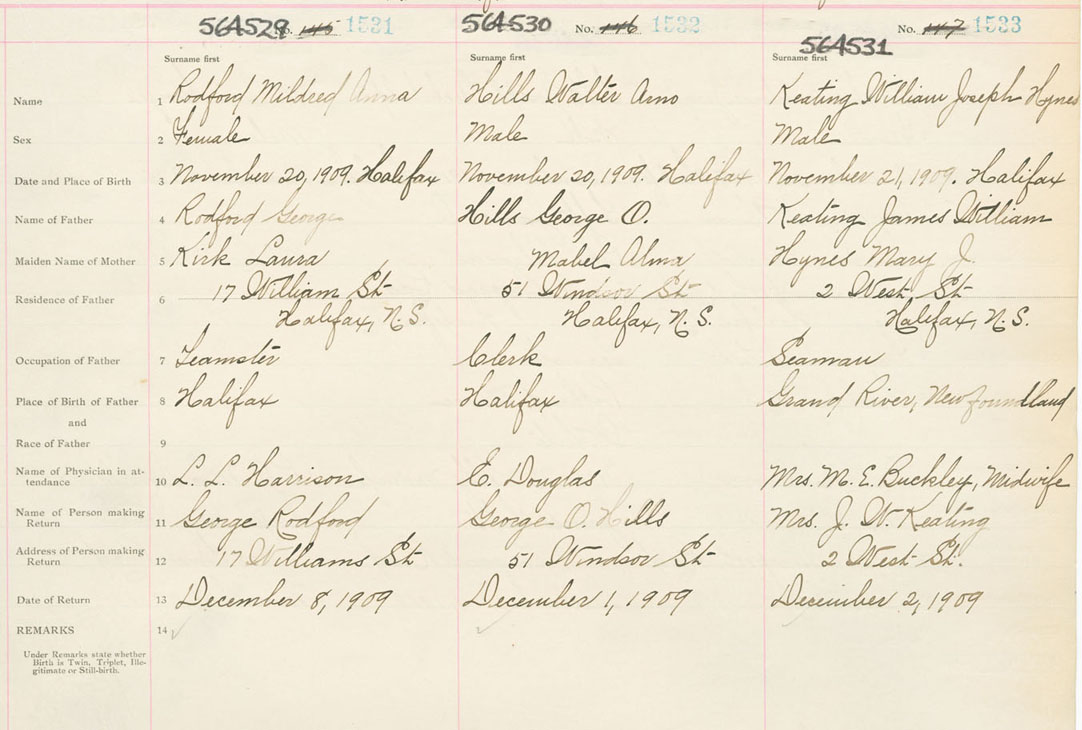 564529 No. 145 1531 564530 No. 146 1532 564531 No. 147 1533
Surname first Surname first Surname first
Name 1 Rodford Mildred Anna Hills Walter Arno Keating William Joseph Hynes
Sex 2 Female Male Male
Date and Place of Birth 3 November 20, 1909. Halifax November 20, 1909. Halifax November 21, 1909. Halifax
Name of Father 4 Rodford George Hills George O. Keating James William
Maiden Name of Mother 5 Kirk Laura Mabel Alma Hynes Mary J.
Residence of Father 6 17 William St 51 Windsor St 2 West St
Halifax, N.S. Halifax, N.S. Halifax, N.S.
Occupation of Father 7 Teamster Clerk Seaman
Place of Birth of Father 8 Halifax Halifax Grand River, Newfoundland
and
Race of Father 9
Name of Physician in at-
tendance 10 L. L. Harrison E. Douglas Mrs. M. E. Buckley, Midwife
Name of Person making
Return 11 George Rodford George O. Hills Mrs. J. W. Keating
Address of Person making
Return 12 17 Williams St 51 Windsor St 2 West St.
Date of Return 13 December 8, 1909 December 1, 1909 December 2, 1909
REMARKS 14
Under Remarks state whether
Birth is Twin, Triplet, Ille-
gitimate or Still-birth.